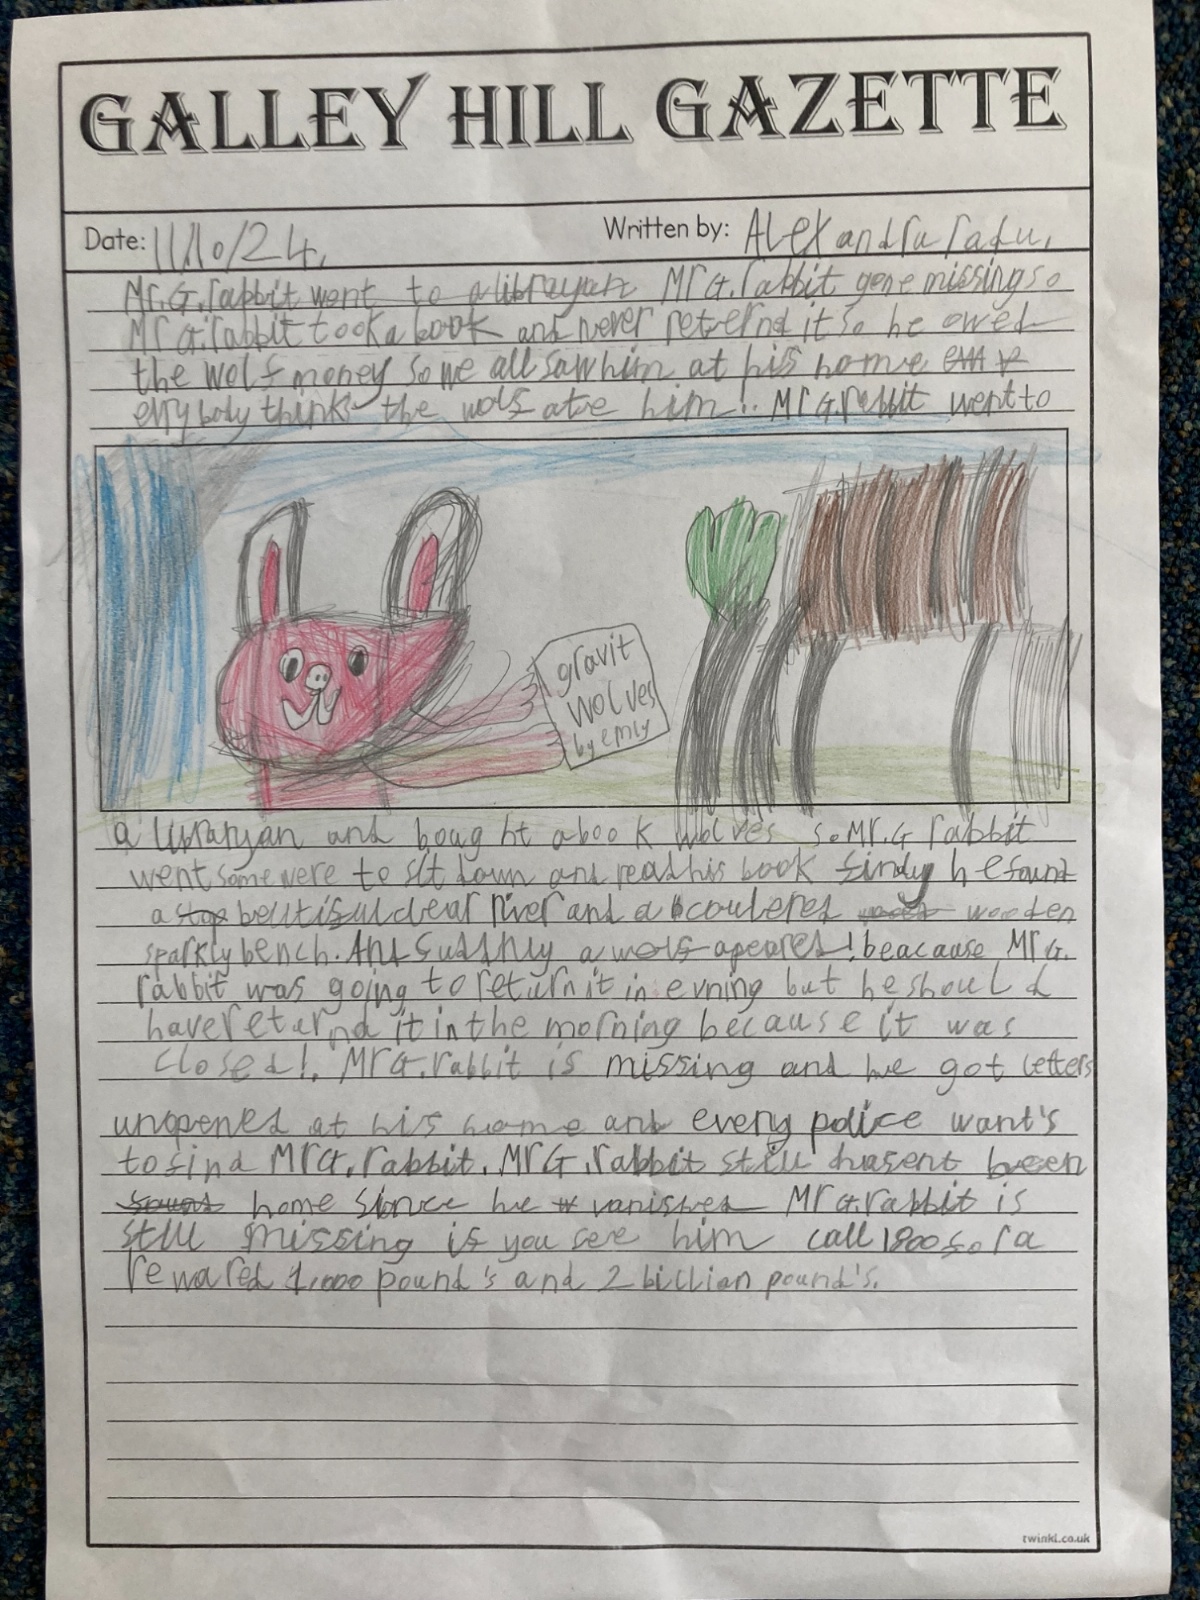 GALLEY HILL GAZETTE
Date: 11/10/24. Written by: Alexandra radu.
Mr.G.rabbit went to a librayan Mr G.rabbit gone missing so
Mr G.rabbit took a book and never reternd it so he owed
the wolf money so we all saw him at his home
evrybody thinks the wolf ate him!. Mr G.rabbit went to
gravit
wolves
by emly
a libraryan and bought a book wolves so Mr.G rabbit
went somewere to sit down and read his book findly he found
a stop beutiful clear river and a coulered wooden
sparkly bench. And suddnly a wolf apeared! beacause Mr G.
rabbit was going to return it in evning but he should
have reternd it in the morning because it was
closed!. Mr G.rabbit is missing and we got letters
unopened at his home and every police want's
to find Mr G.rabbit. Mr G.rabbit still hasent been
found home since he vanished Mr G.rabbit is
still missing if you see him call 1800 for a
rewared 1,000 pound's and 2 billian pound's.
twinkl.co.uk